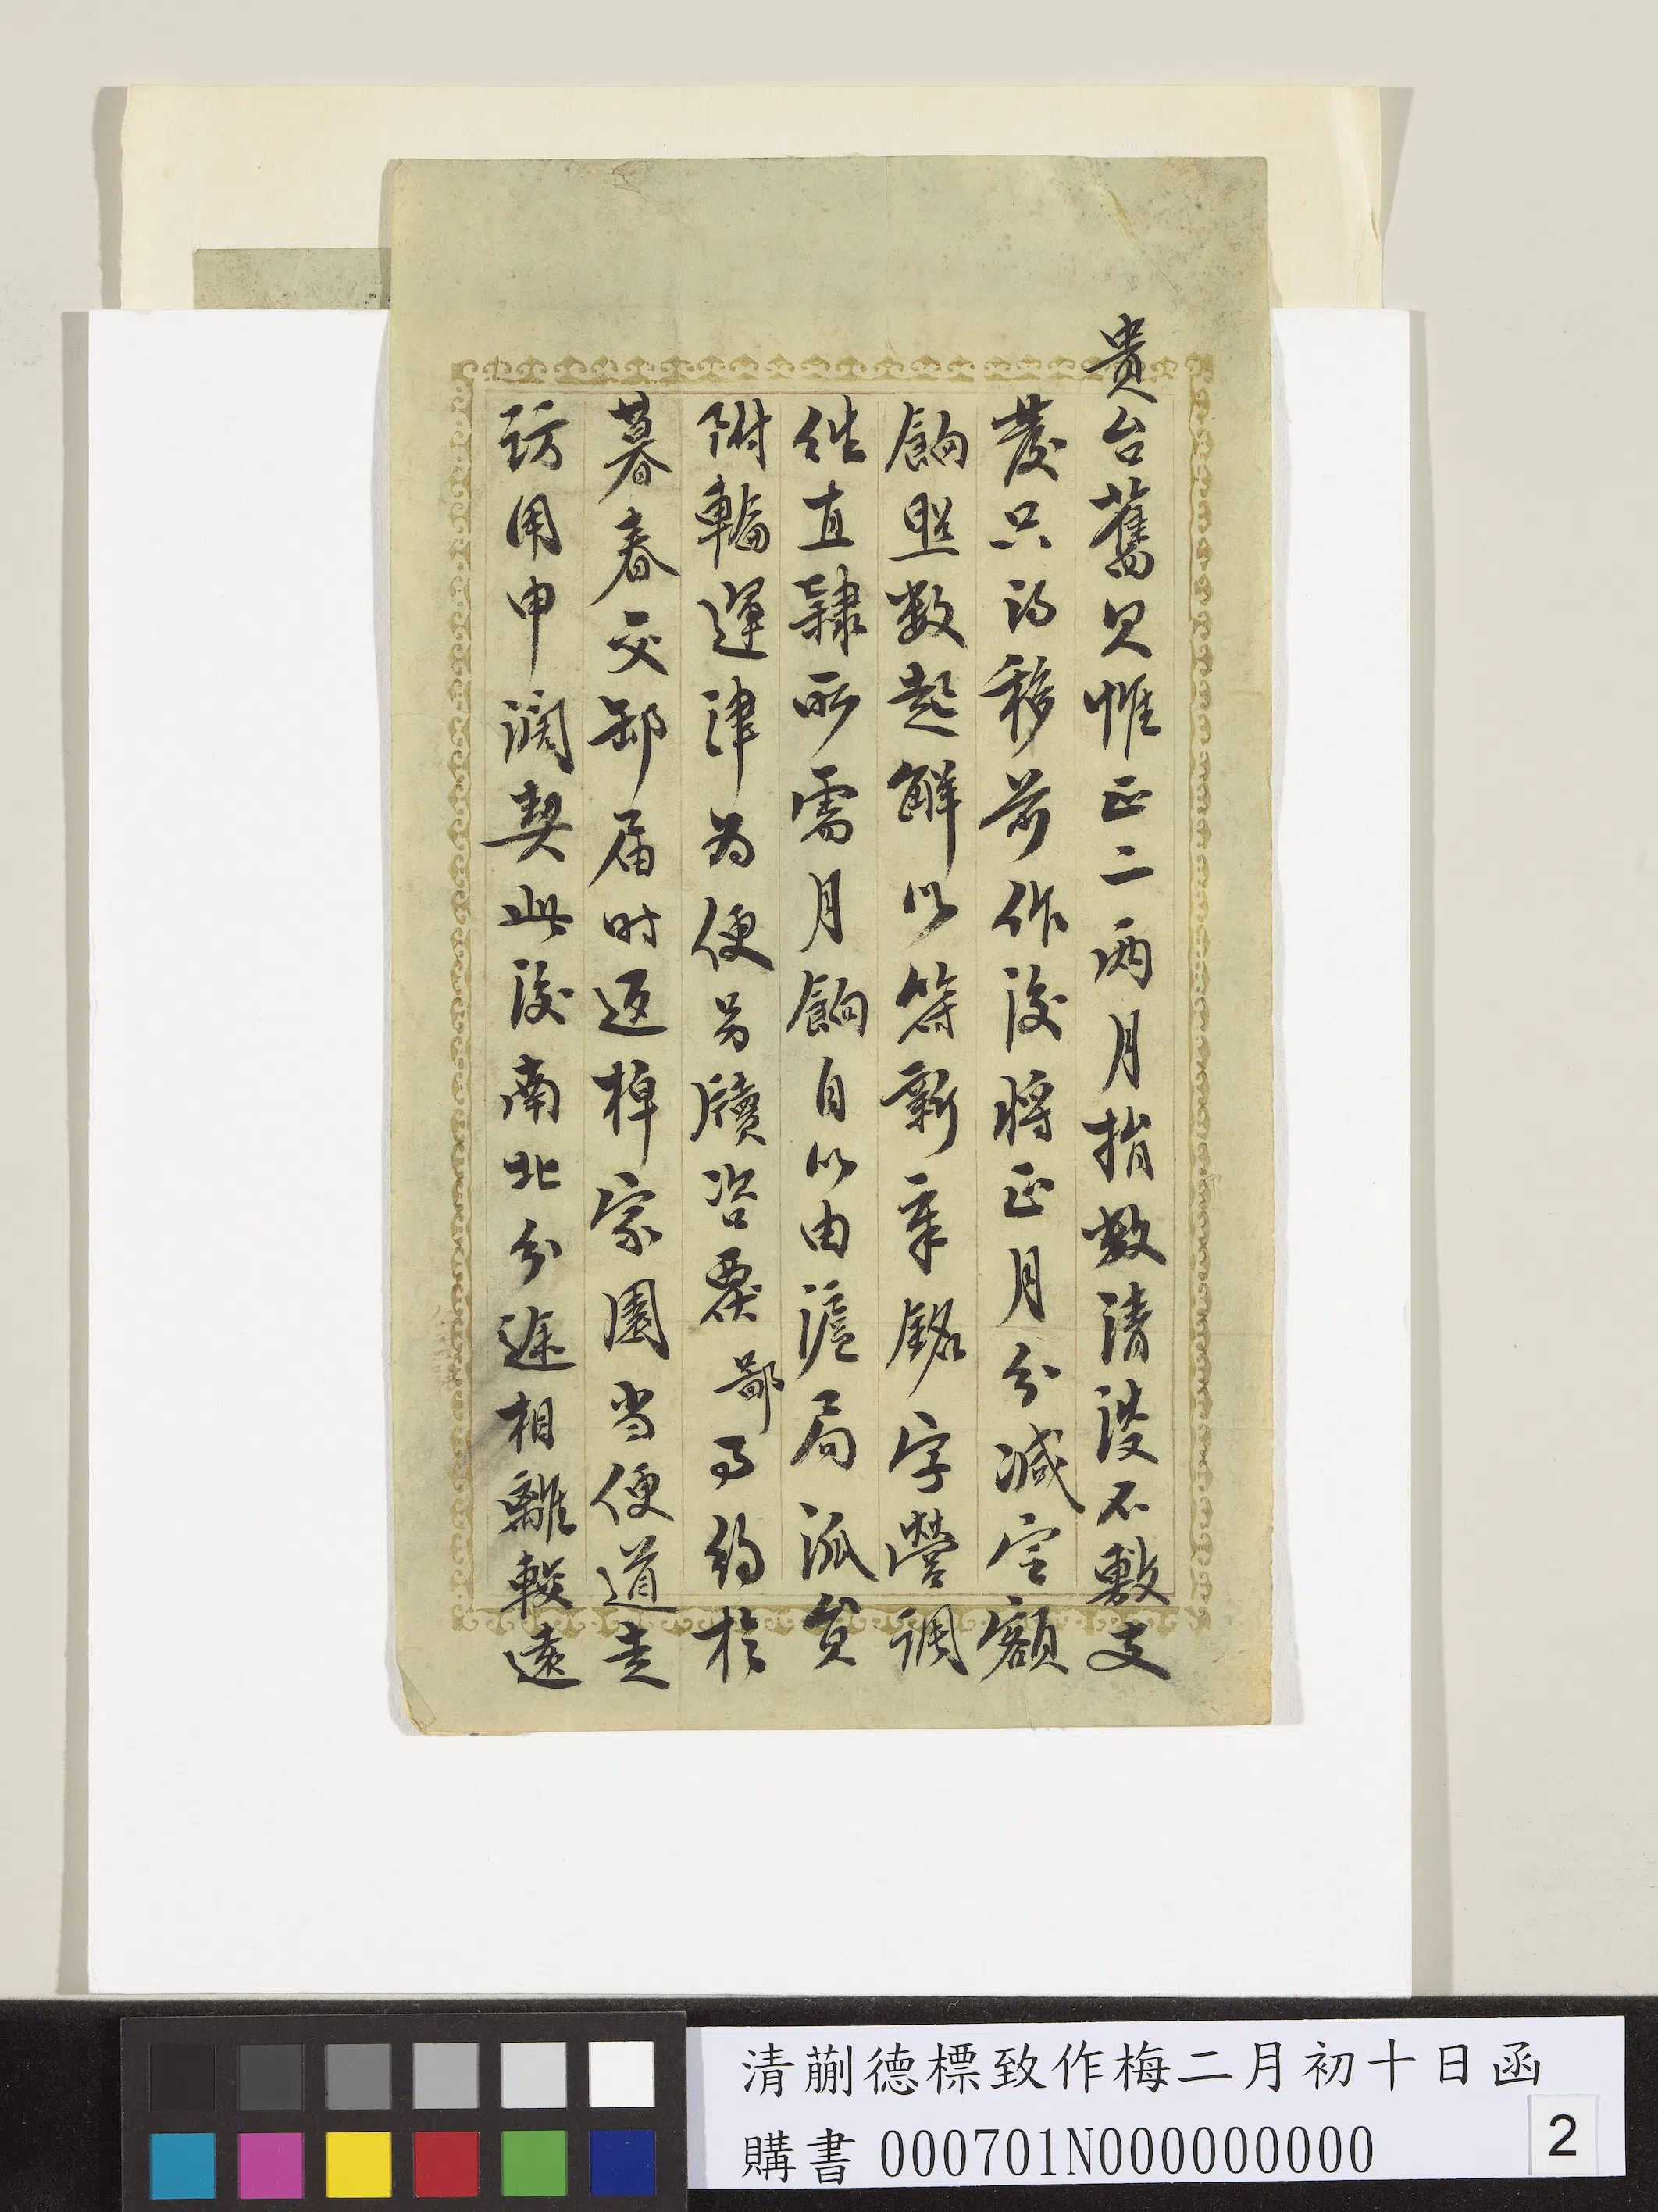 貴台舊賬惟正二兩月指數清洪不敷支
發只得移前作後將正月分減定額
餉照數起解以等新章銘字營調
往直隸所需月餉自以由滬局派貟
附輪運津為便另牘咨覆鄙事約於
暮春交卸届时返棹家園当便道走
訪用申濶契此後南北分途相離較遠
清蒯德標致作梅二月初十日函
購書 000701N000000000
2